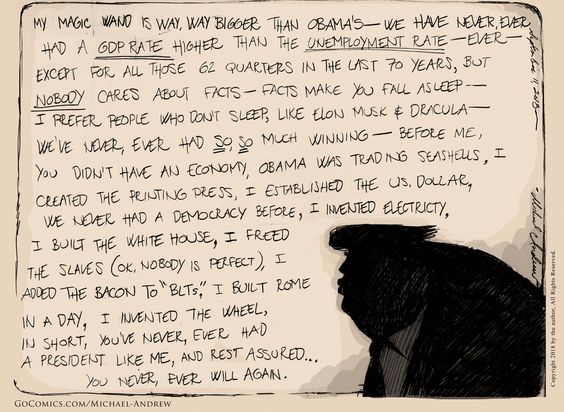 MY MAGIC WAND IS WAY, WAY BIGGER THAN OBAMA'S — WE HAVE NEVER, EVER
HAD A GDP RATE HIGHER THAN THE UNEMPLOYMENT RATE — EVER —
EXCEPT FOR ALL THOSE 62 QUARTERS IN THE LAST 70 YEARS, BUT
NOBODY CARES ABOUT FACTS — FACTS MAKE YOU FALL ASLEEP —
I PREFER PEOPLE WHO DON'T SLEEP, LIKE ELON MUSK & DRACULA —
WE'VE NEVER, EVER HAD SO, SO MUCH WINNING — BEFORE ME,
YOU DIDN'T HAVE AN ECONOMY, OBAMA WAS TRADING SEASHELLS, I
CREATED THE PRINTING PRESS, I ESTABLISHED THE U.S. DOLLAR,
WE NEVER HAD A DEMOCRACY BEFORE, I INVENTED ELECTRICTY,
I BUILT THE WHITE HOUSE, I FREED
THE SLAVES (OK, NOBODY IS PERFECT), I
ADDED THE BACON TO "BLTs," I BUILT ROME
IN A DAY, I INVENTED THE WHEEL,
IN SHORT, YOU'VE NEVER, EVER HAD
A PRESIDENT LIKE ME, AND REST ASSURED...
YOU NEVER, EVER WILL AGAIN.
Copyright 2018 by the author, All Rights Reserved.
GOCOMICS.COM/MICHAEL-ANDREW